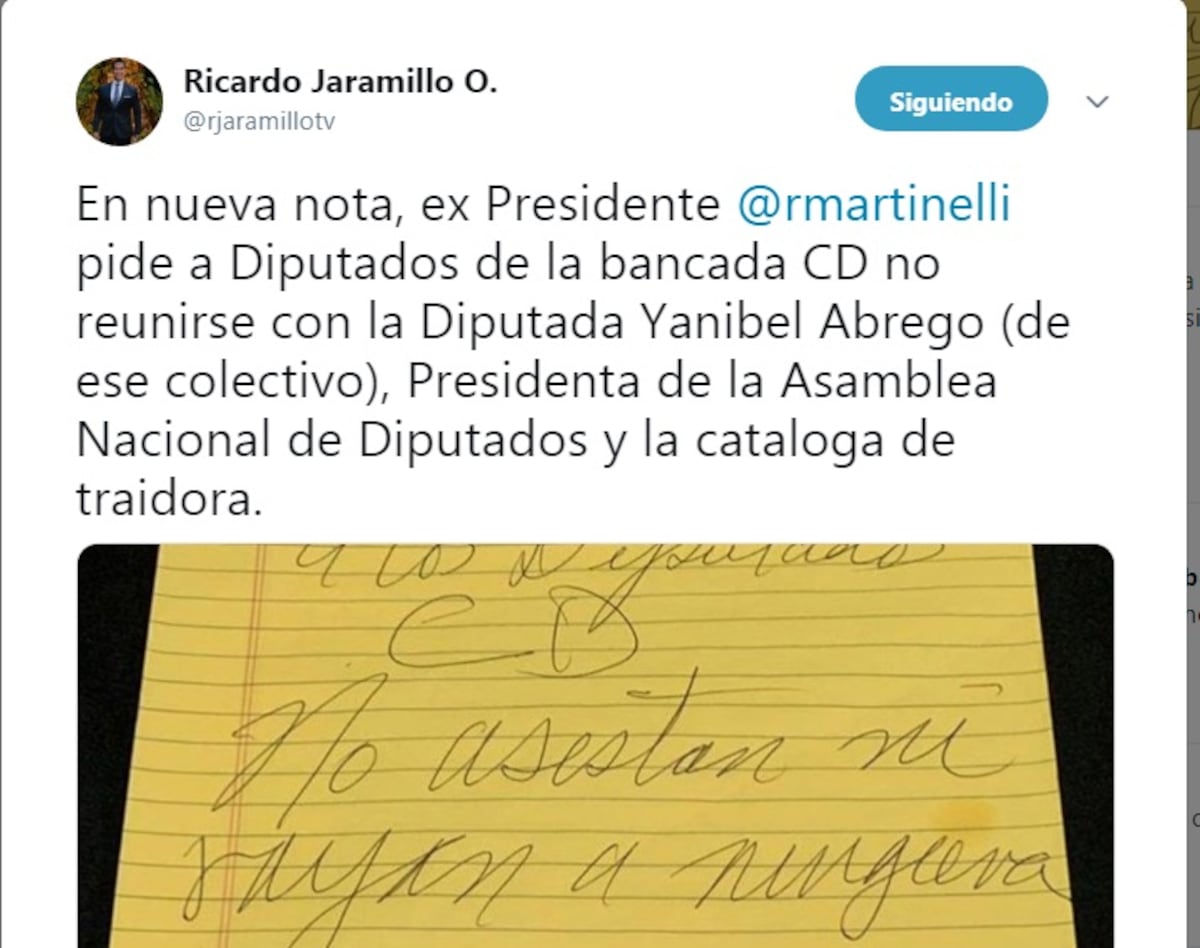 Ricardo Jaramillo O.
@rjaramillotv
Siguiendo
En nueva nota, ex Presidente @rmartinelli
pide a Diputados de la bancada CD no
reunirse con la Diputada Yanibel Abrego (de
ese colectivo), Presidenta de la Asamblea
Nacional de Diputados y la cataloga de
traidora.
a los Diputado
CD
No asestan ni
vayan a ninguna